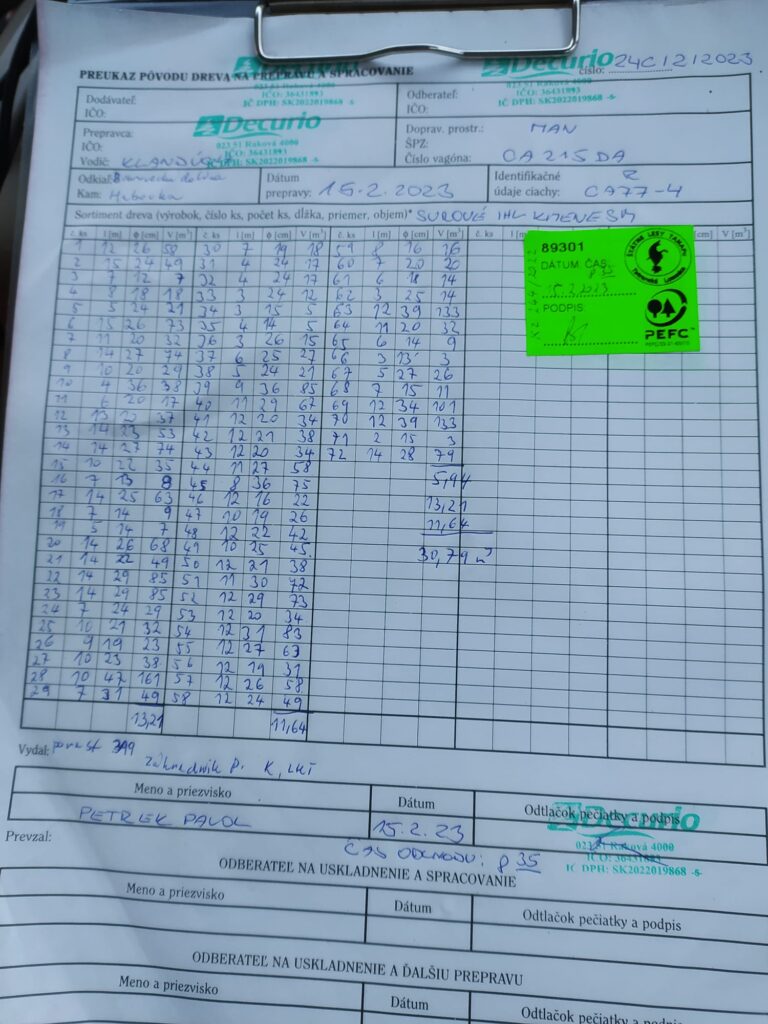 Decurio
PREUKAZ PÔVODU DREVA NA PREPRAVU A SPRACOVANIE
číslo: 24C/2/2023
023 51 Raková 4000
IČO: 36431893
IČ DPH: SK2022019868 -8-
Dodávateľ:
IČO:
Odberateľ:
IČO:
Prepravca:
IČO:
Vodič:
Decurio
023 51 Raková 4000
IČO: 36431893
IČ DPH: SK2022019868 -8-
Doprav. prostr.: MAN
ŠPZ:
Číslo vagóna: CA215DA
Odkiaľ:
Kam: Habovka
Dátum
prepravy: 15.2.2023
Identifikačné
údaje ciachy: CA77-4
Sortiment dreva (výrobok, číslo ks, počet ks, dĺžka, priemer, objem)* SUROVÉ IHL KMENE SM
č. ks l [m] ϕ [cm] V [m³] č. ks l [m] ϕ [cm] V [m³] č. ks l [m] ϕ [cm] V [m³] č. ks l [m] ϕ [cm] V [m³]
1 12 26 58 30 7 19 18 59 8 16 16
2 15 24 49 31 4 24 17 60 7 20 20
3 7 12 7 32 4 24 17 61 6 18 14
4 8 18 18 33 3 24 12 62 3 25 14
5 5 24 21 34 3 15 5 63 12 39 133
6 15 26 73 35 4 14 5 64 11 20 32
7 11 20 32 36 3 26 15 65 6 14 9
8 14 27 74 37 6 25 27 66 3 13 3
9 10 20 29 38 5 24 21 67 5 27 26
10 4 36 38 39 9 36 85 68 7 15 11
11 6 20 17 40 11 29 67 69 12 34 101
12 13 37 41 12 20 34 70 12 39 133
13 14 23 53 42 12 21 38 71 2 15 3
14 14 27 74 43 12 20 34 72 14 28 79
15 10 22 35 44 11 27 58
16 7 13 8 45 8 36 75 5,94
17 14 25 63 46 12 16 22 13,21
18 7 14 9 47 10 19 26 11,64
19 5 14 7 48 12 22 42
20 14 26 68 49 10 25 45 30,79 m³
21 14 22 49 50 12 21 38
22 14 29 85 51 11 30 72
23 14 29 85 52 12 29 73
24 7 24 29 53 12 20 34
25 10 21 32 54 12 31 83
26 9 19 23 55 12 27 63
27 10 23 38 56 12 19 31
28 10 47 161 57 12 26 58
29 7 31 49 58 12 24 49
13,21 11,64
89301
DÁTUM: ČAS:
15.2.2023
PODPIS:
PEFC
Vydal:
Meno a priezvisko
Dátum
Odtlačok pečiatky a podpis
PETREK PAVOL
15.2.23
Decurio
023 51 Raková 4000
IČO: 36431893
IČ DPH: SK2022019868 -8-
Prevzal:
ČAS ODCHODU: 8 35
ODBERATEĽ NA USKLADNENIE A SPRACOVANIE
Meno a priezvisko
Dátum
Odtlačok pečiatky a podpis
ODBERATEĽ NA USKLADNENIE A ĎALŠIU PREPRAVU
Meno a priezvisko
Dátum
Odtlačok pečiatky a podpis